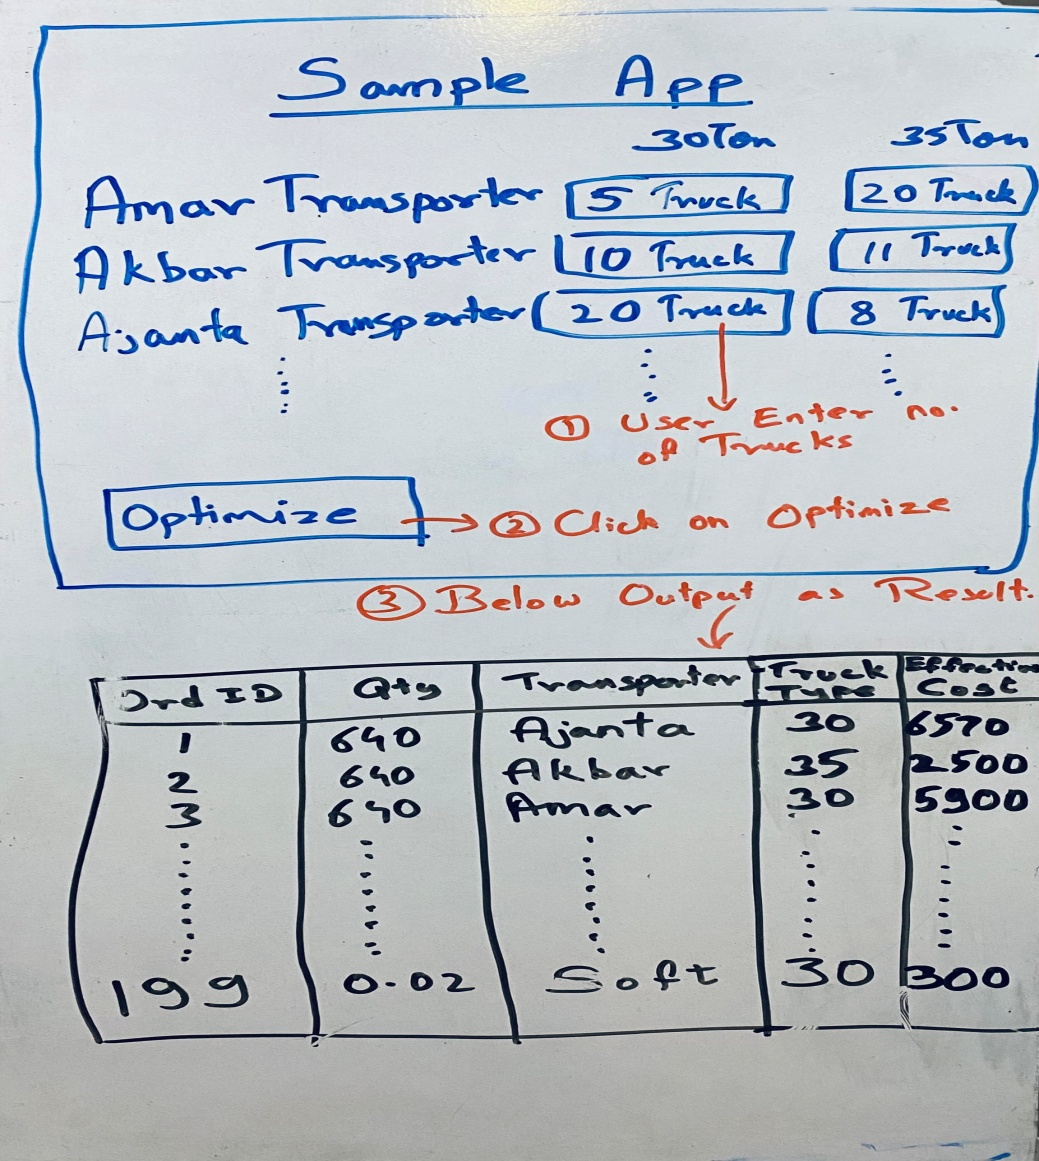 Sample App
30Ton 35Ton
Amar Transporter 5 Truck 20 Truck
Akbar Transporter 10 Truck 11 Truck
Ajanta Transporter 20 Truck 8 Truck
① User Enter no.
of Trucks
Optimize → ② Click on Optimize
③ Below Output as Result.
Ord ID Qty Transporter Truck Type Effective Cost
1 640 Ajanta 30 6570
2 640 Akbar 35 2500
3 640 Amar 30 5900
199 0.02 Soft 30 300